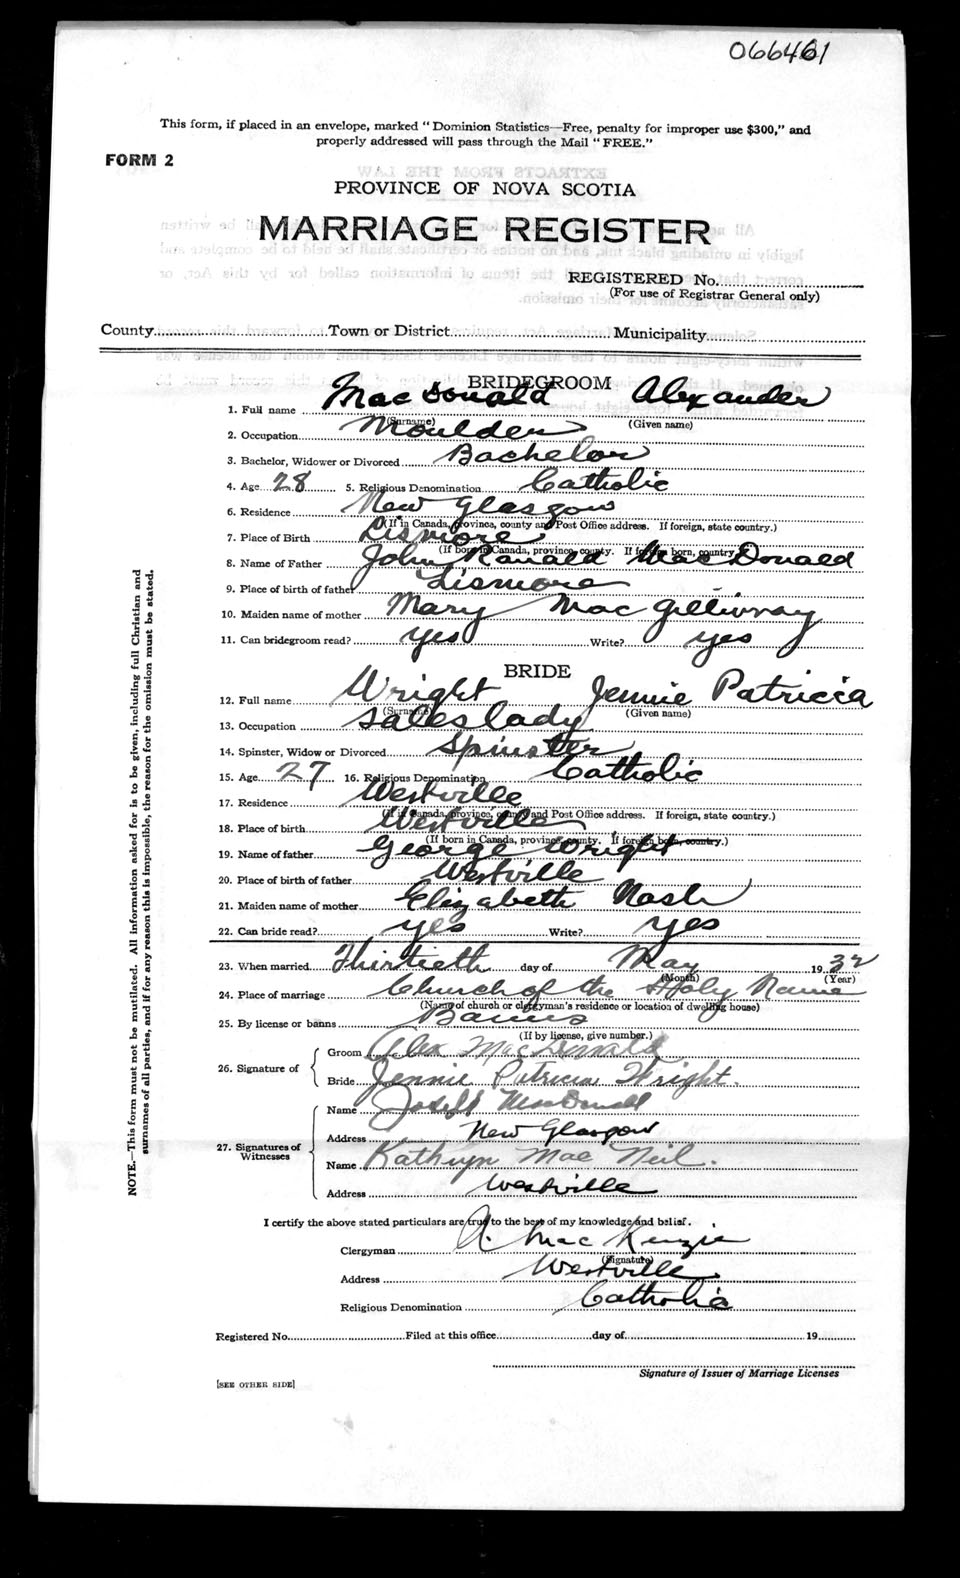 066461
This form, if placed in an envelope, marked "Dominion Statistics—Free, penalty for improper use $300," and
properly addressed will pass through the Mail "FREE."
FORM 2
PROVINCE OF NOVA SCOTIA
MARRIAGE REGISTER
REGISTERED No.
(For use of Registrar General only)
County Town or District Municipality
BRIDEGROOM
1. Full name MacDonald Alexander
(Surname) (Given name)
2. Occupation Moulder
3. Bachelor, Widower or Divorced Bachelor
4. Age 28 5. Religious Denomination Catholic
6. Residence New Glasgow
(If in Canada, province, county and Post Office address. If foreign, state country.)
7. Place of Birth Lismore
(If born in Canada, province, county. If foreign born, country.)
8. Name of Father John Ranald MacDonald
9. Place of birth of father Lismore
10. Maiden name of mother Mary MacGillivray
11. Can bridegroom read? yes Write? yes
BRIDE
12. Full name Wright Jennie Patricia
(Surname) (Given name)
13. Occupation Saleslady
14. Spinster, Widow or Divorced Spinster
15. Age 27 16. Religious Denomination Catholic
17. Residence Westville
(If in Canada, province, county and Post Office address. If foreign, state country.)
18. Place of birth Westville
(If born in Canada, province, county. If foreign born, country.)
19. Name of father George Wright
20. Place of birth of father Westville
21. Maiden name of mother Elizabeth Nash
22. Can bride read? yes Write? yes
23. When married Thirtieth day of May 1932
(Month) (Year)
24. Place of marriage Church of the Holy Name
(Name of church or clergyman's residence or location of dwelling house)
25. By license or banns Banns
(If by license, give number.)
26. Signature of
Groom Alex MacDonald
Bride Jennie Patricia Wright.
27. Signatures of Witnesses
Name Joseph MacDonald
Address New Glasgow
Name Kathryn Mac Neil.
Address Westville
I certify the above stated particulars are true to the best of my knowledge and belief.
Clergyman A. MacKenzie
(Signature)
Address Westville
Religious Denomination Catholic
Registered No. Filed at this office day of 19
Signature of Issuer of Marriage Licenses
[SEE OTHER SIDE]
NOTE.—This form must not be mutilated. All information asked for is to be given, including full Christian and
surnames of all parties, and if for any reason this is impossible, the reason for the omission must be stated.